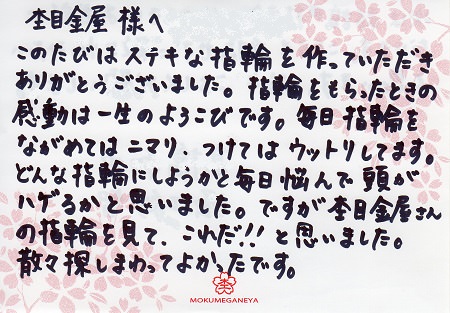 杢目金屋 様へ
このたびは ステキな 指輪 を 作っていただき
ありがとうございました。指輪をもらったときの
感動は一生のよろこびです。毎日 指輪を
ながめては ニマリ、つけては ウットリしてます。
どんな 指輪にしようかと毎日 悩んで 頭が
ハゲるかと思いました。ですが 杢目金屋さん
の指輪を見て、これだ!! と思いました。
散々探しまわってよかったです。
MOKUMEGANEYA